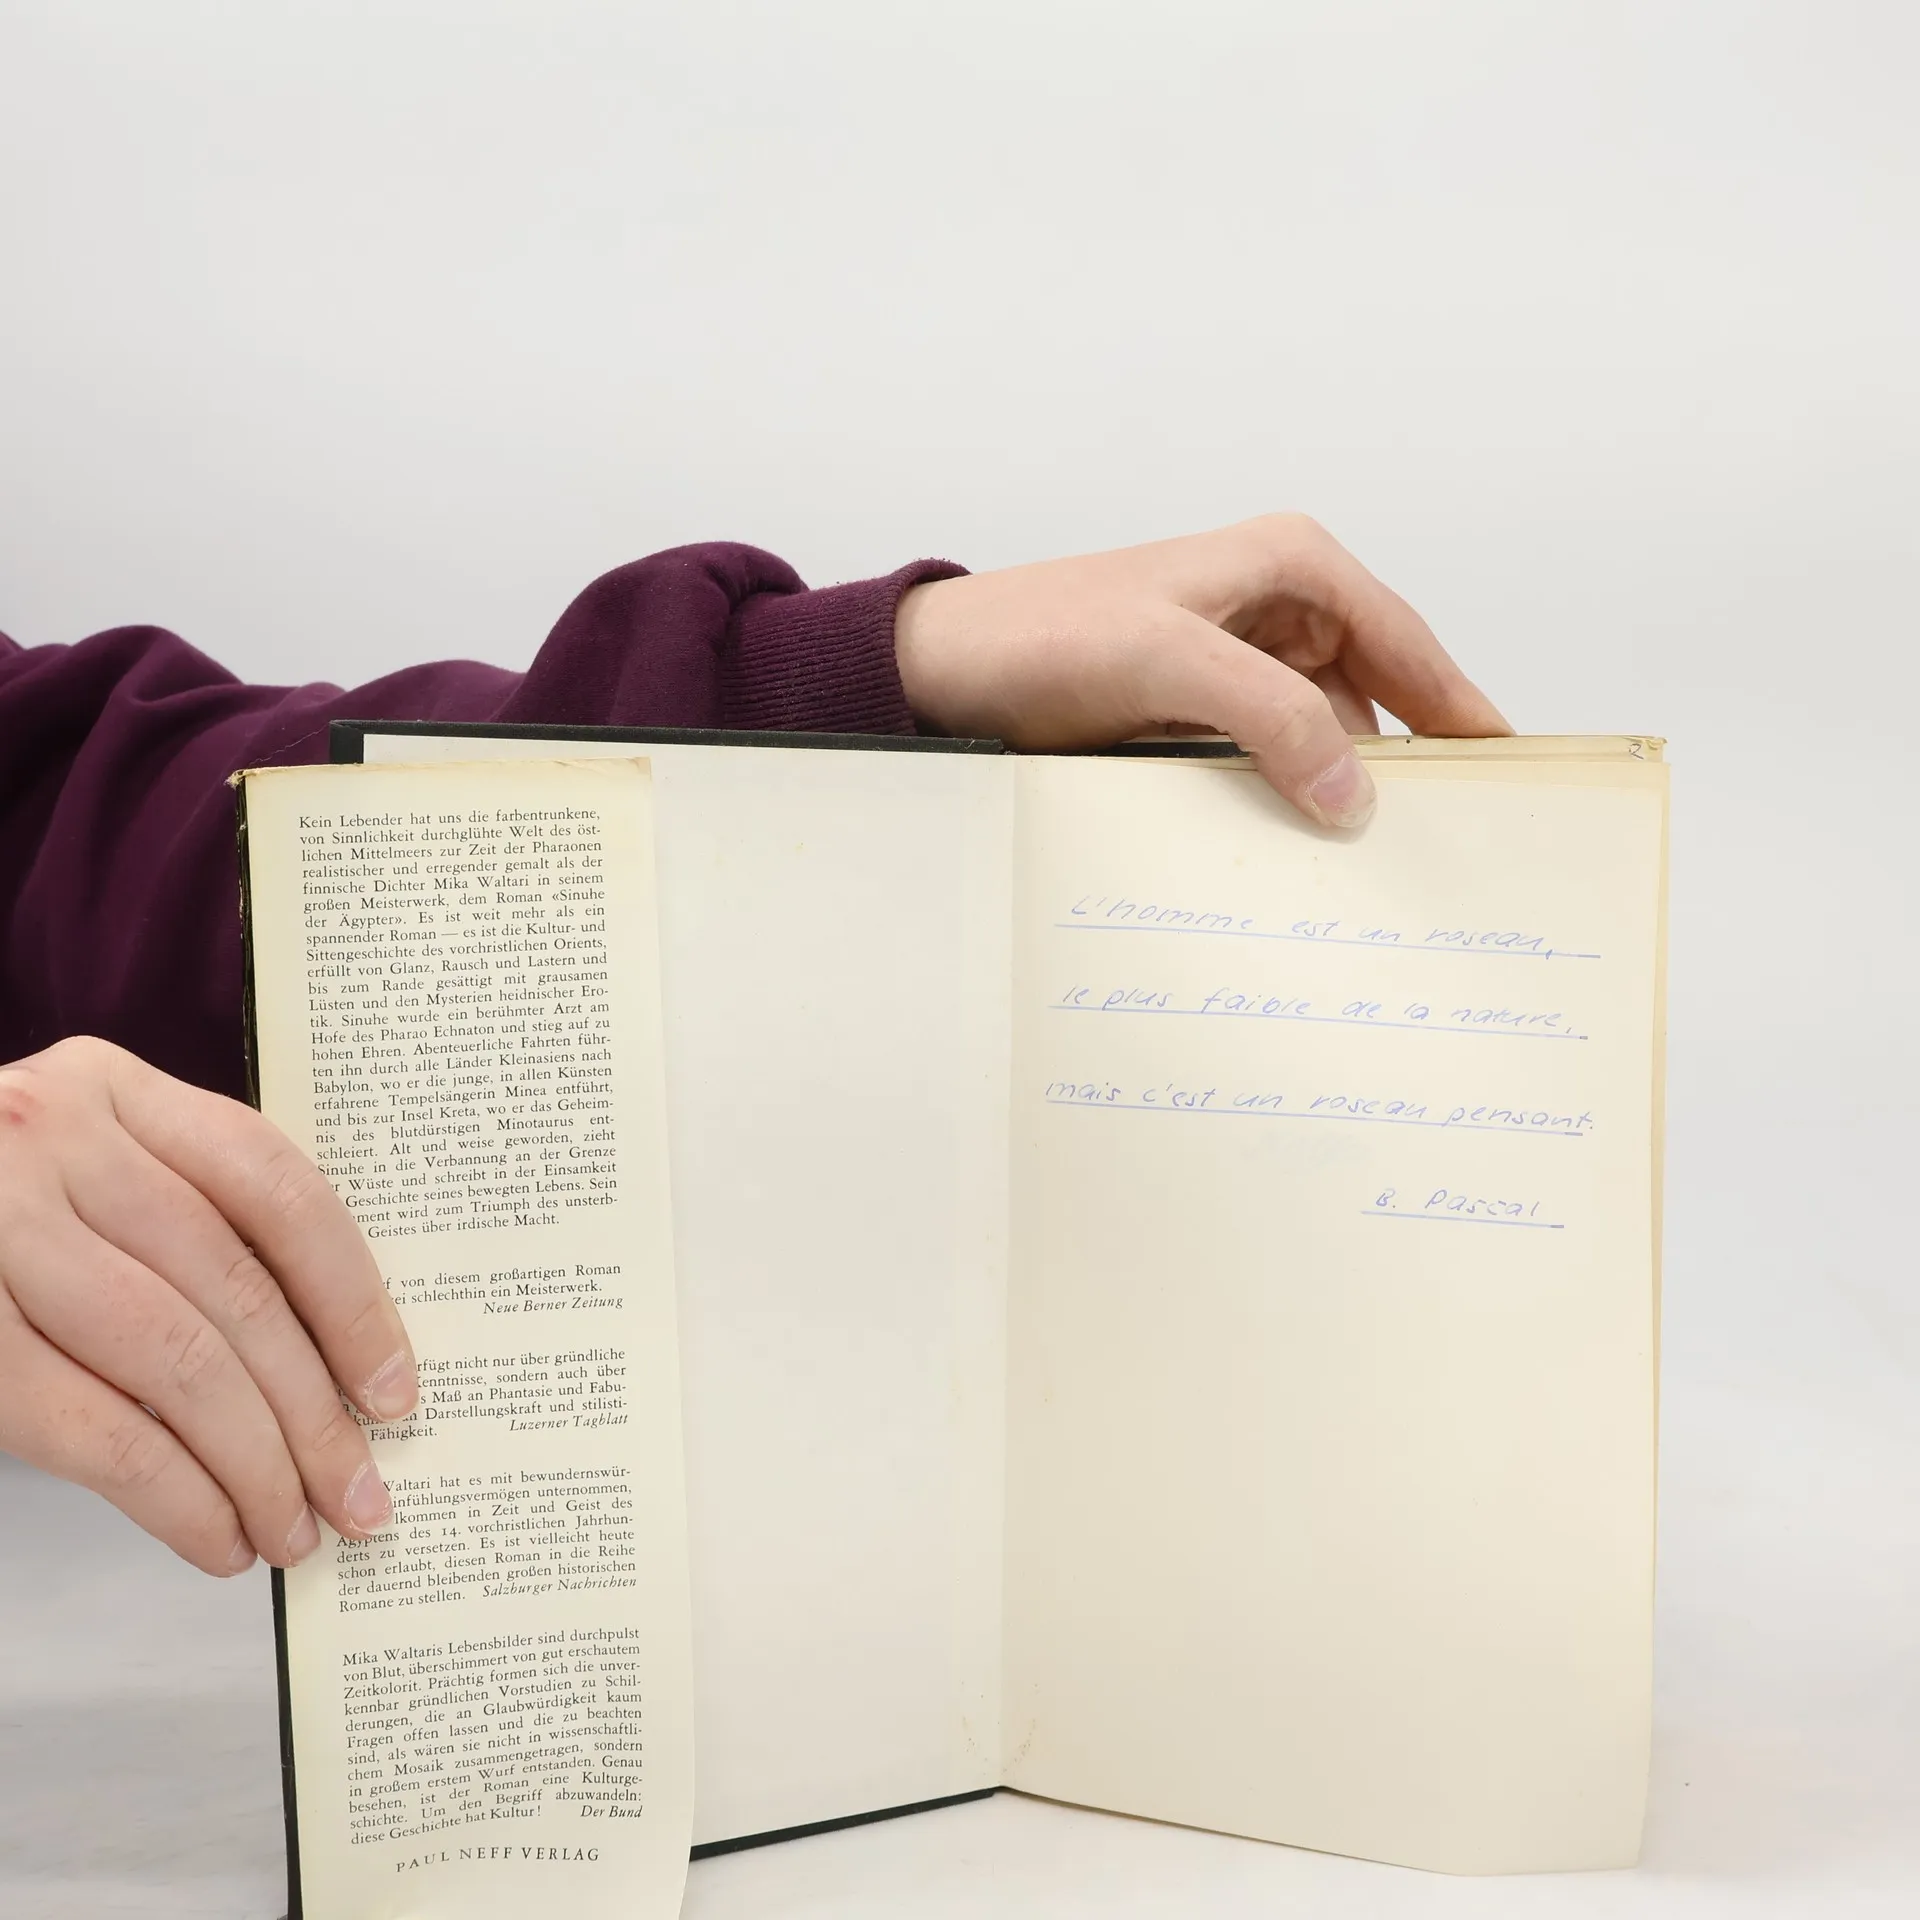 Kein Lebender hat uns die farbentrunkene,
von Sinnlichkeit durchglühte Welt des öst-
lichen Mittelmeers zur Zeit der Pharaonen
realistischer und erregender gemalt als der
finnische Dichter Mika Waltari in seinem
großen Meisterwerk, dem Roman «Sinuhe
der Ägypter». Es ist weit mehr als ein
spannender Roman — es ist die Kultur- und
Sittengeschichte des vorchristlichen Orients,
erfüllt von Glanz, Rausch und Lastern und
bis zum Rande gesättigt mit grausamen
Lüsten und den Mysterien heidnischer Ero-
tik. Sinuhe wurde ein berühmter Arzt am
Hofe des Pharao Echnaton und stieg auf zu
hohen Ehren. Abenteuerliche Fahrten führ-
ten ihn durch alle Länder Kleinasiens nach
Babylon, wo er die junge, in allen Künsten
erfahrene Tempelsängerin Minea entführt,
und bis zur Insel Kreta, wo er das Geheim-
nis des blutdürstigen Minotaurus ent-
schleiert. Alt und weise geworden, zieht
Sinuhe in die Verbannung an der Grenze
Wüste und schreibt in der Einsamkeit
Geschichte seines bewegten Lebens. Sein
wird zum Triumph des unsterb-
Geistes über irdische Macht.
von diesem großartigen Roman
schlechthin ein Meisterwerk.
Neue Berner Zeitung
nicht nur über gründliche
sondern auch über
Maß an Phantasie und Fabu-
Darstellungskraft und stilisti-
Fähigkeit. Luzerner Tagblatt
Waltari hat es mit bewundernswür-
unternommen,
in Zeit und Geist des
Ägyptens des 14. vorchristlichen Jahrhun-
derts zu versetzen. Es ist vielleicht heute
schon erlaubt, diesen Roman in die Reihe
der dauernd bleibenden großen historischen
Romane zu stellen. Salzburger Nachrichten
Mika Waltaris Lebensbilder sind durchpulst
von Blut, überschimmert von gut erschautem
Zeitkolorit. Prächtig formen sich die unver-
kennbar gründlichen Vorstudien zu Schil-
derungen, die an Glaubwürdigkeit kaum
Fragen offen lassen und die zu beachten
sind, als wären sie nicht in wissenschaftli-
chem Mosaik zusammengetragen, sondern
in großem erstem Wurf entstanden. Genau
besehen, ist der Roman eine Kulturge-
schichte. Um den Begriff abzuwandeln:
diese Geschichte hat Kultur! Der Bund
PAUL NEFF VERLAG
2
L'homme est un roseau,
le plus faible de la nature,
mais c'est un roseau pensant.
B. Pascal